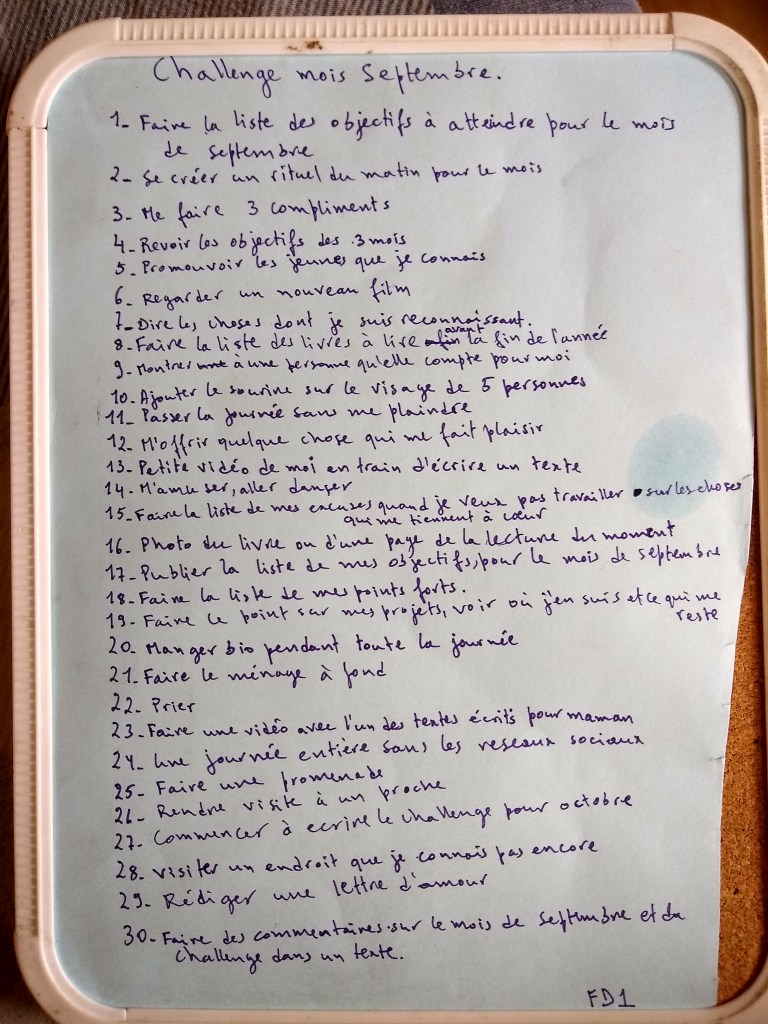 Challenge mois Septembre.
1- Faire la liste des objectifs à atteindre pour le mois
de septembre
2- Se créer un rituel du matin pour le mois
3- Me faire 3 compliments
4- Revoir les objectifs des 3 mois
5- Promouvoir les jeunes que je connais
6- Regarder un nouveau film
7- Dire les choses dont je suis reconnaissant.
8- Faire la liste des livres à lire avant la fin de l'année
9- Montrer à une personne qu'elle compte pour moi
10- Ajouter le sourire sur le visage de 5 personnes
11- Passer la journée sans me plaindre
12- M'offrir quelque chose qui me fait plaisir
13- Petite vidéo de moi en train d'écrire un texte
14- M'amuser, aller danser
15- Faire la liste de mes excuses quand je veux pas travailler sur les choses
qui me tiennent à cœur
16- Photo du livre ou d'une page de la lecture du moment
17- Publier la liste de mes objectifs, pour le mois de septembre
18- Faire la liste de mes points forts.
19- Faire le point sur mes projets, voir où j'en suis et ce qui me
reste
20- Manger bio pendant toute la journée
21- Faire le ménage à fond
22- Prier
23- Faire une vidéo avec l'un des textes écrits pour maman
24- Une journée entière sans les reseaux sociaux
25- Faire une promenade
26- Rendre visite à un proche
27- Commencer à ecrire le challenge pour octobre
28- Visiter un endroit que je connais pas encore
29- Rédiger une lettre d'amour
30- Faire des commentaires sur le mois de Septembre et du
challenge dans un texte.
FD1